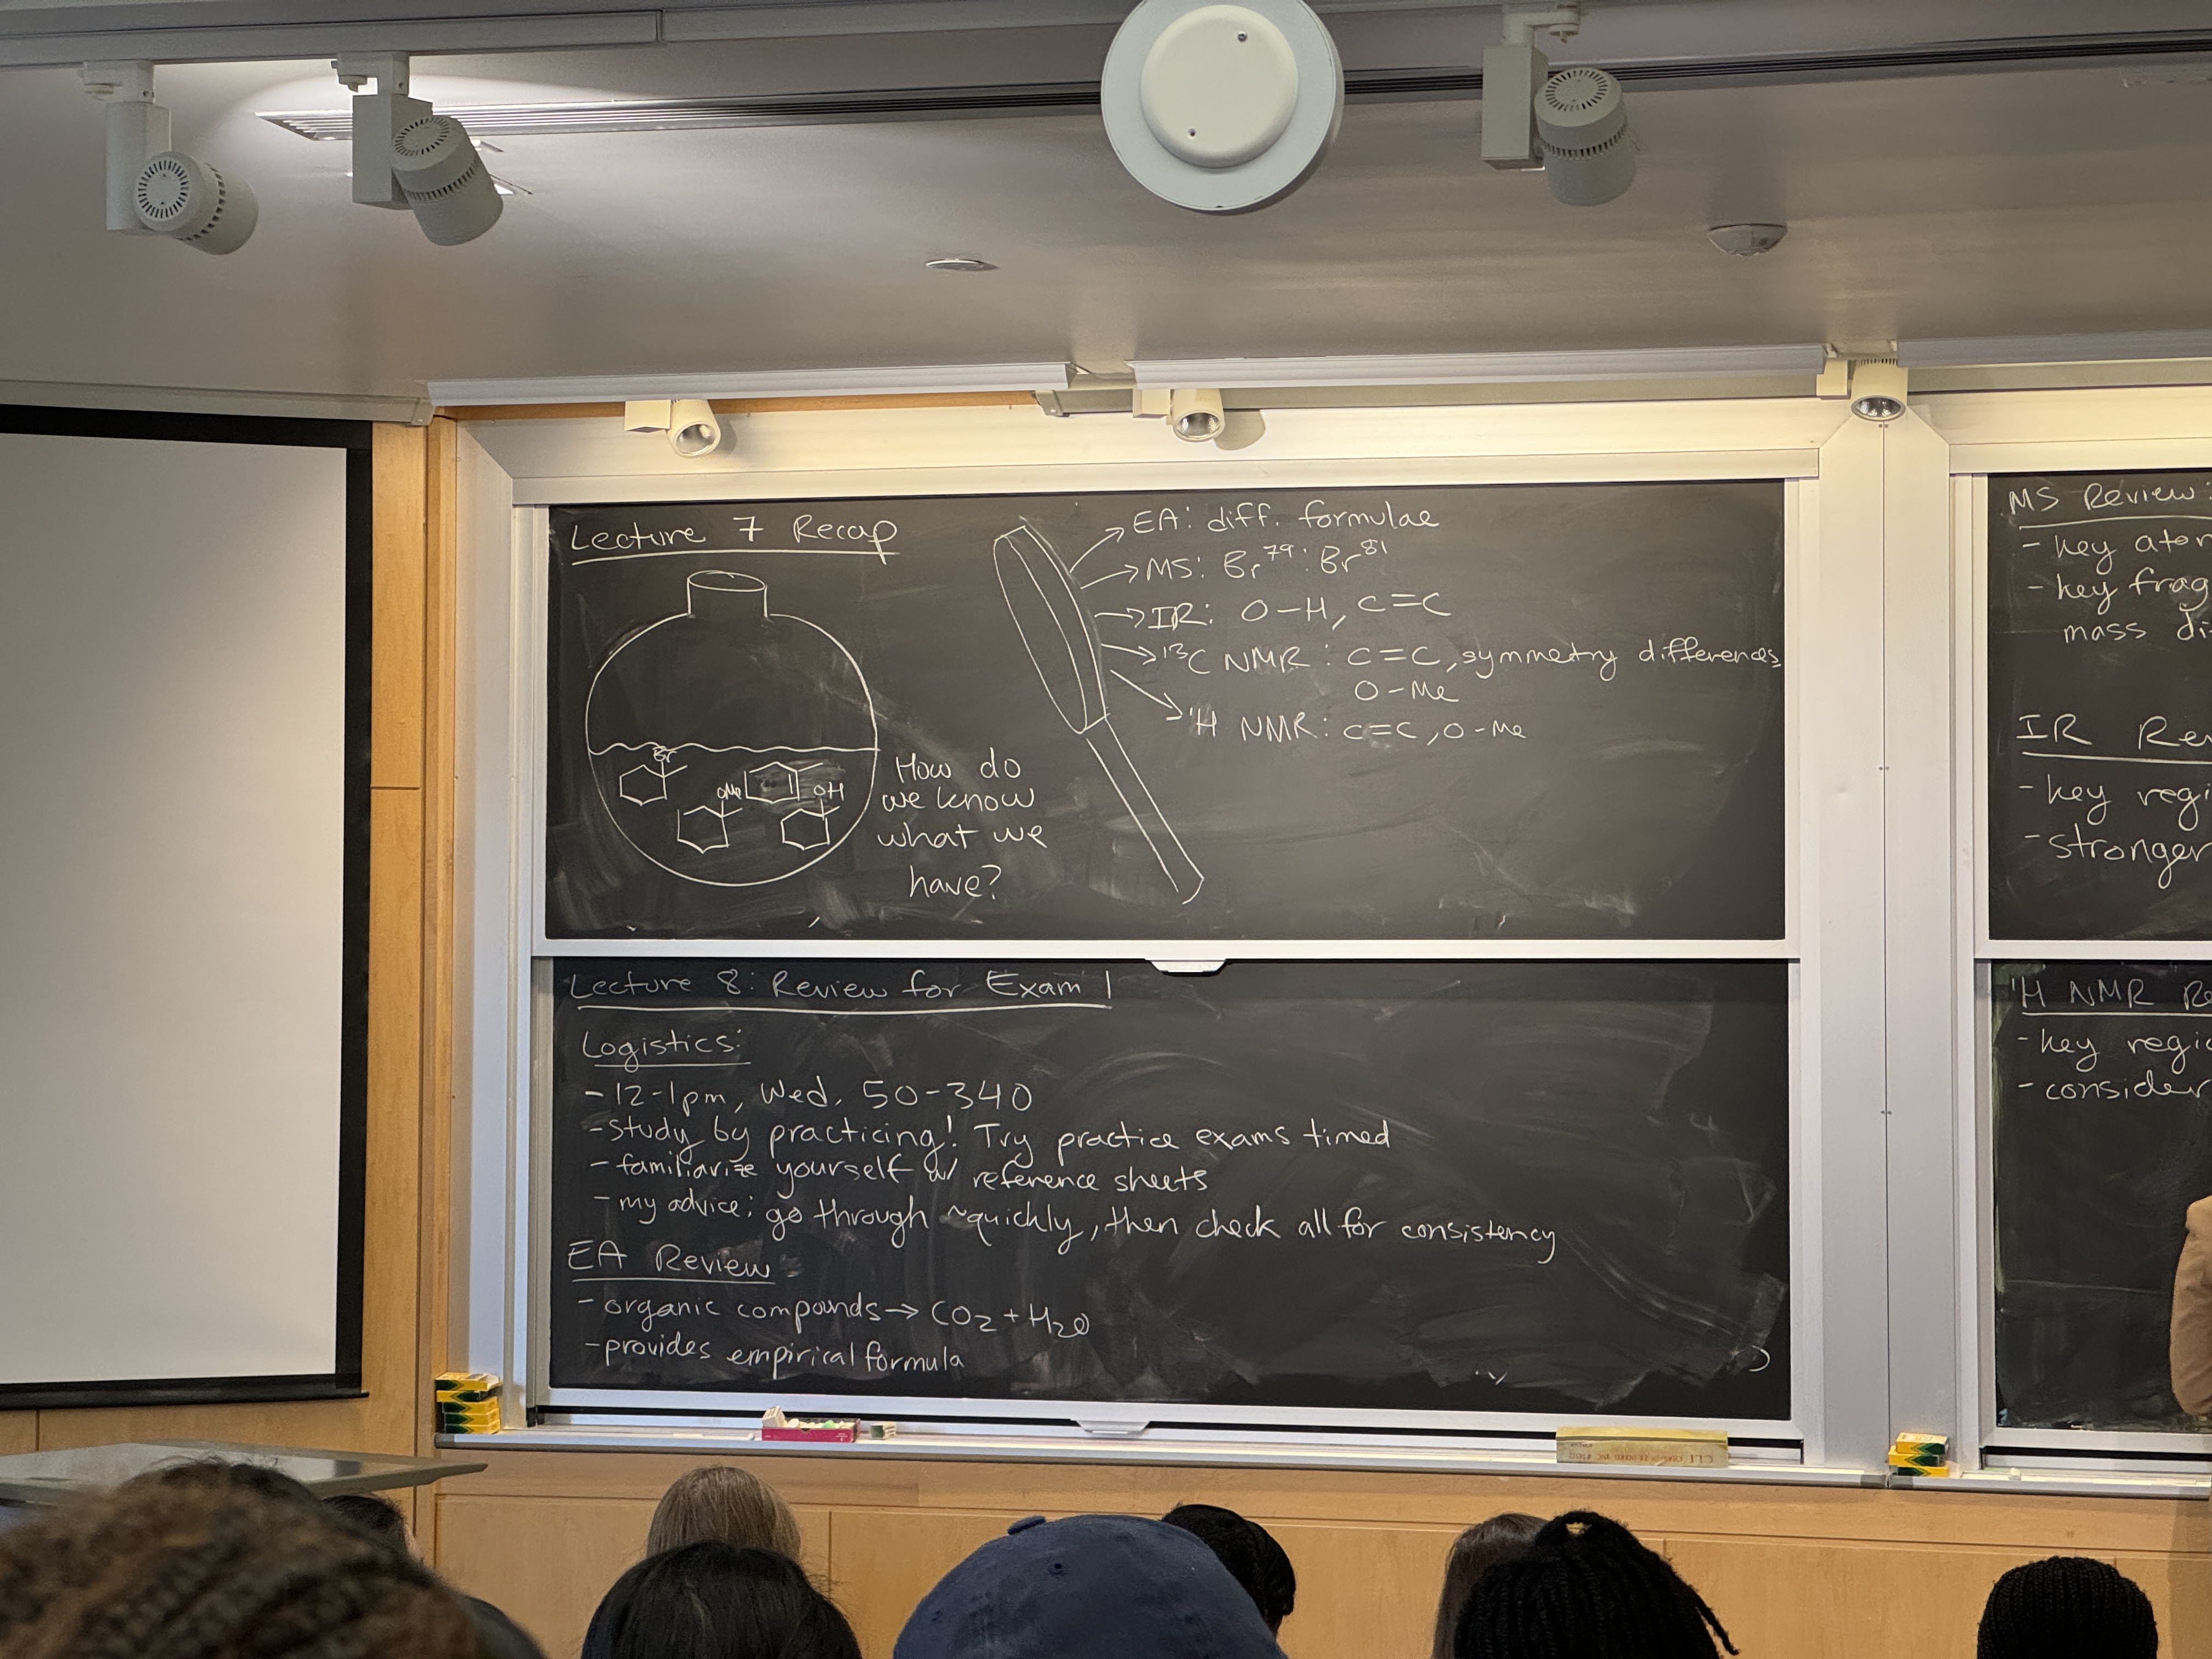 Lecture 7 Recap
Br
OMe
OH
How do
we know
what we
have?
EA: diff. formulae
MS: Br⁷⁹: Br⁸¹
IR: O-H, C=C
¹³C NMR: C=C, symmetry differences
O-Me
¹H NMR: C=C, O-Me
Lecture 8: Review for Exam 1
Logistics:
- 12-1pm, Wed. 50-340
- study by practicing! Try practice exams timed
- familiarize yourself w/ reference sheets
- my advice: go through ~quickly, then check all for consistency
EA Review
- organic compounds → CO₂ + H₂O
- provides empirical formula
MS Review:
- key
- key
mass
IR
- key
- stronger
¹H NMR
- key
- consider